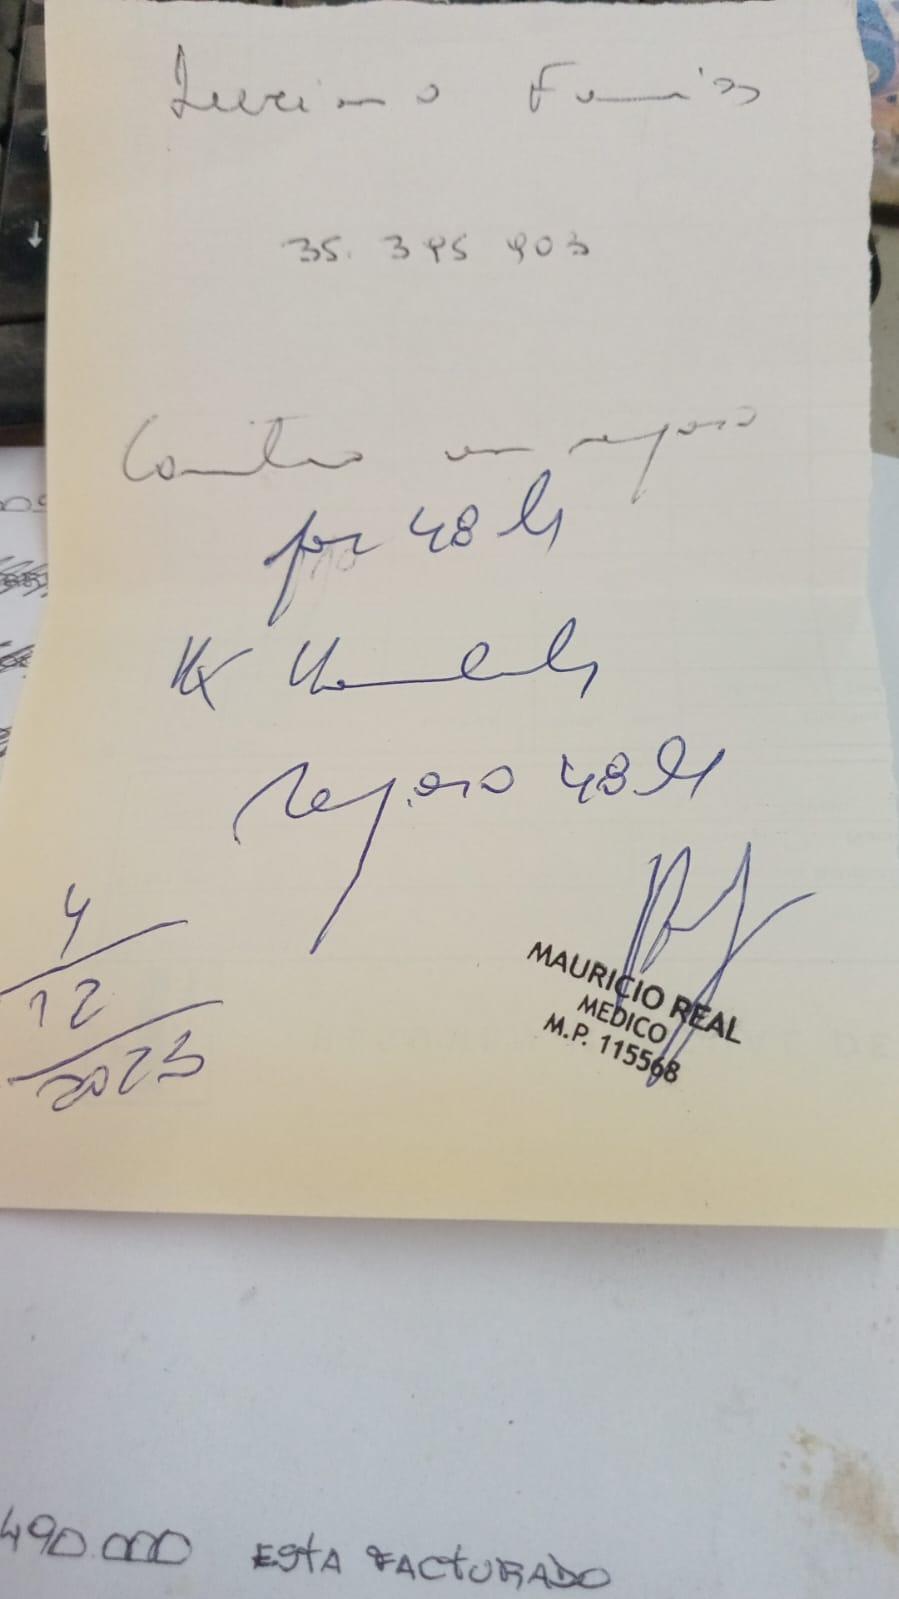 Luciano
35. 395 903
Continua en reposo
por 48 hs
reposo 48 hs
4
12
2023
MAURICIO REAL
MEDICO
M.P. 115568
490.000 ESTA FACTURADO